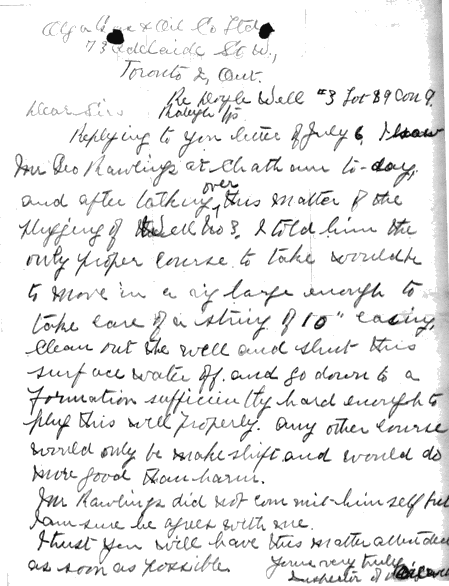 Gas & Oil Co Ltd
73 Adelaide St W.,
Toronto 2, Ont.
Re Doyle Well #3 Lot 89 Con 9
Dear Sirs Raleigh Tp
Replying to your letter of July 6, I saw
Mr Geo Rawlings at Chatham to-day,
and after talking over this matter of the
plugging of Well No 3, I told him the
only proper course to take would be
to move in a rig large enough to
take care of a string of 10" casing,
Clean out the well and shut this
surface water off and go down to a
Formation sufficiently hard enough to
plug this well properly. Any other course
would only be makeshift and would do
more good than harm.
Mr Rawlings did not commit himself but
I am sure he agrees with me.
I trust you will have this matter attended
as soon as possible. Yours very truly
Inspector